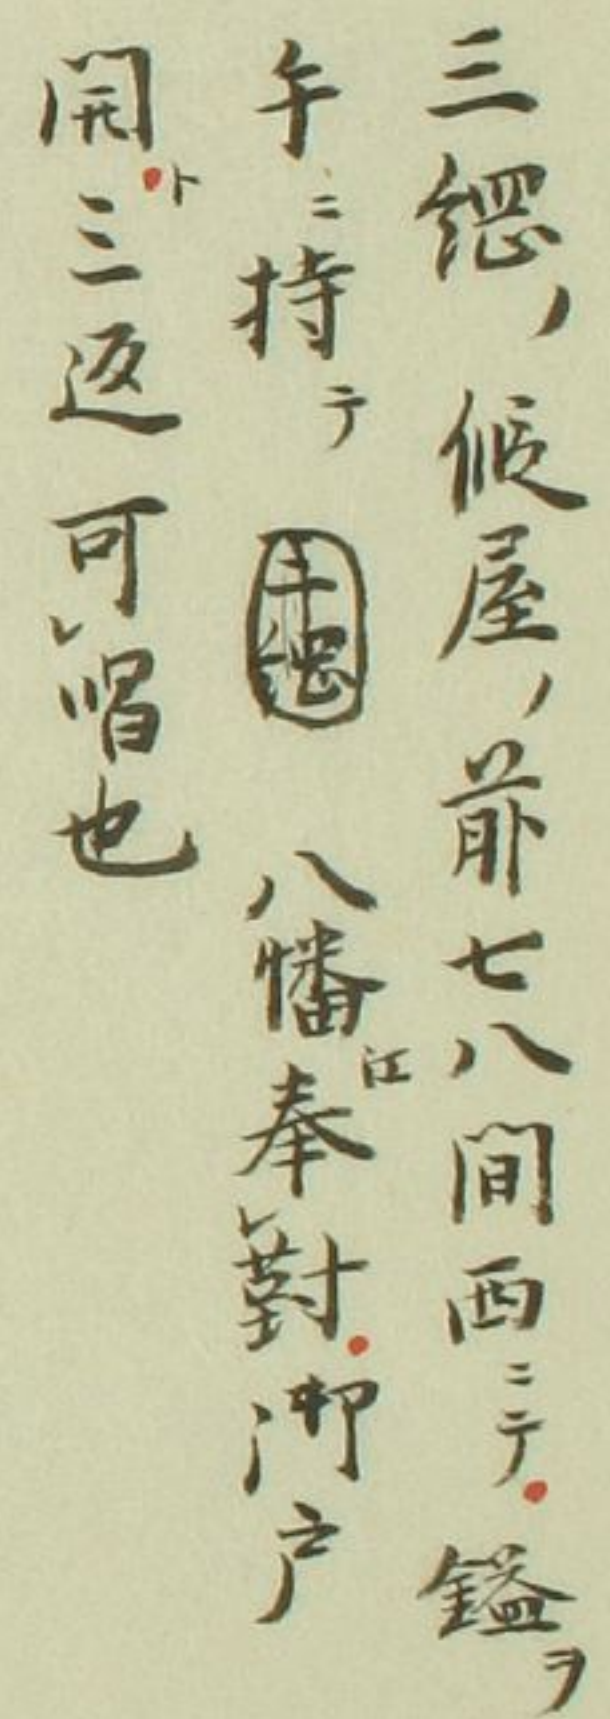 三綱ノ仮屋ノ前七八間西ニテ鎰ヲ
午ニ持テ 三綱 八幡江奉レ對御戸
開ト三返可レ唱也